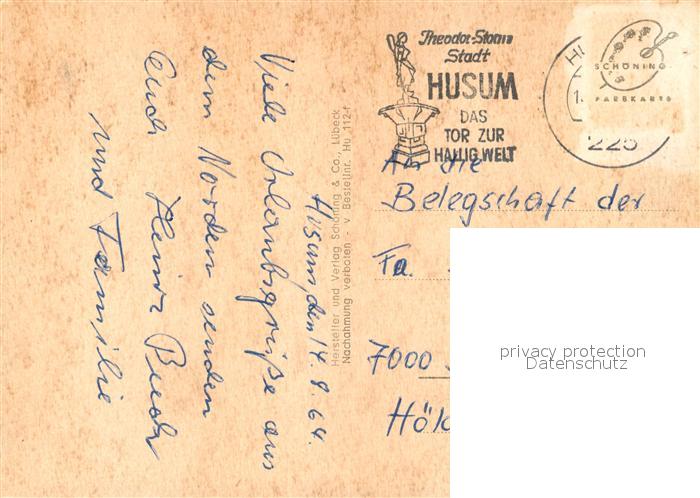 Husum, den 14. 8. 64.
Viele Urlaubsgrüße aus
dem Norden senden
Euch Heinz Buch
und Familie
Hersteller und Verlag Schöning & Co., Lübeck
Nachahmung verboten - v Bestellnr. Hu 112-f
Theodor-Storm
Stadt
HUSUM
DAS
TOR ZUR
HALLIG WELT
SCHÖNING
FARBKARTE
225
An die
Belegschaft der
Fa.
7000
privacy protection
Datenschutz